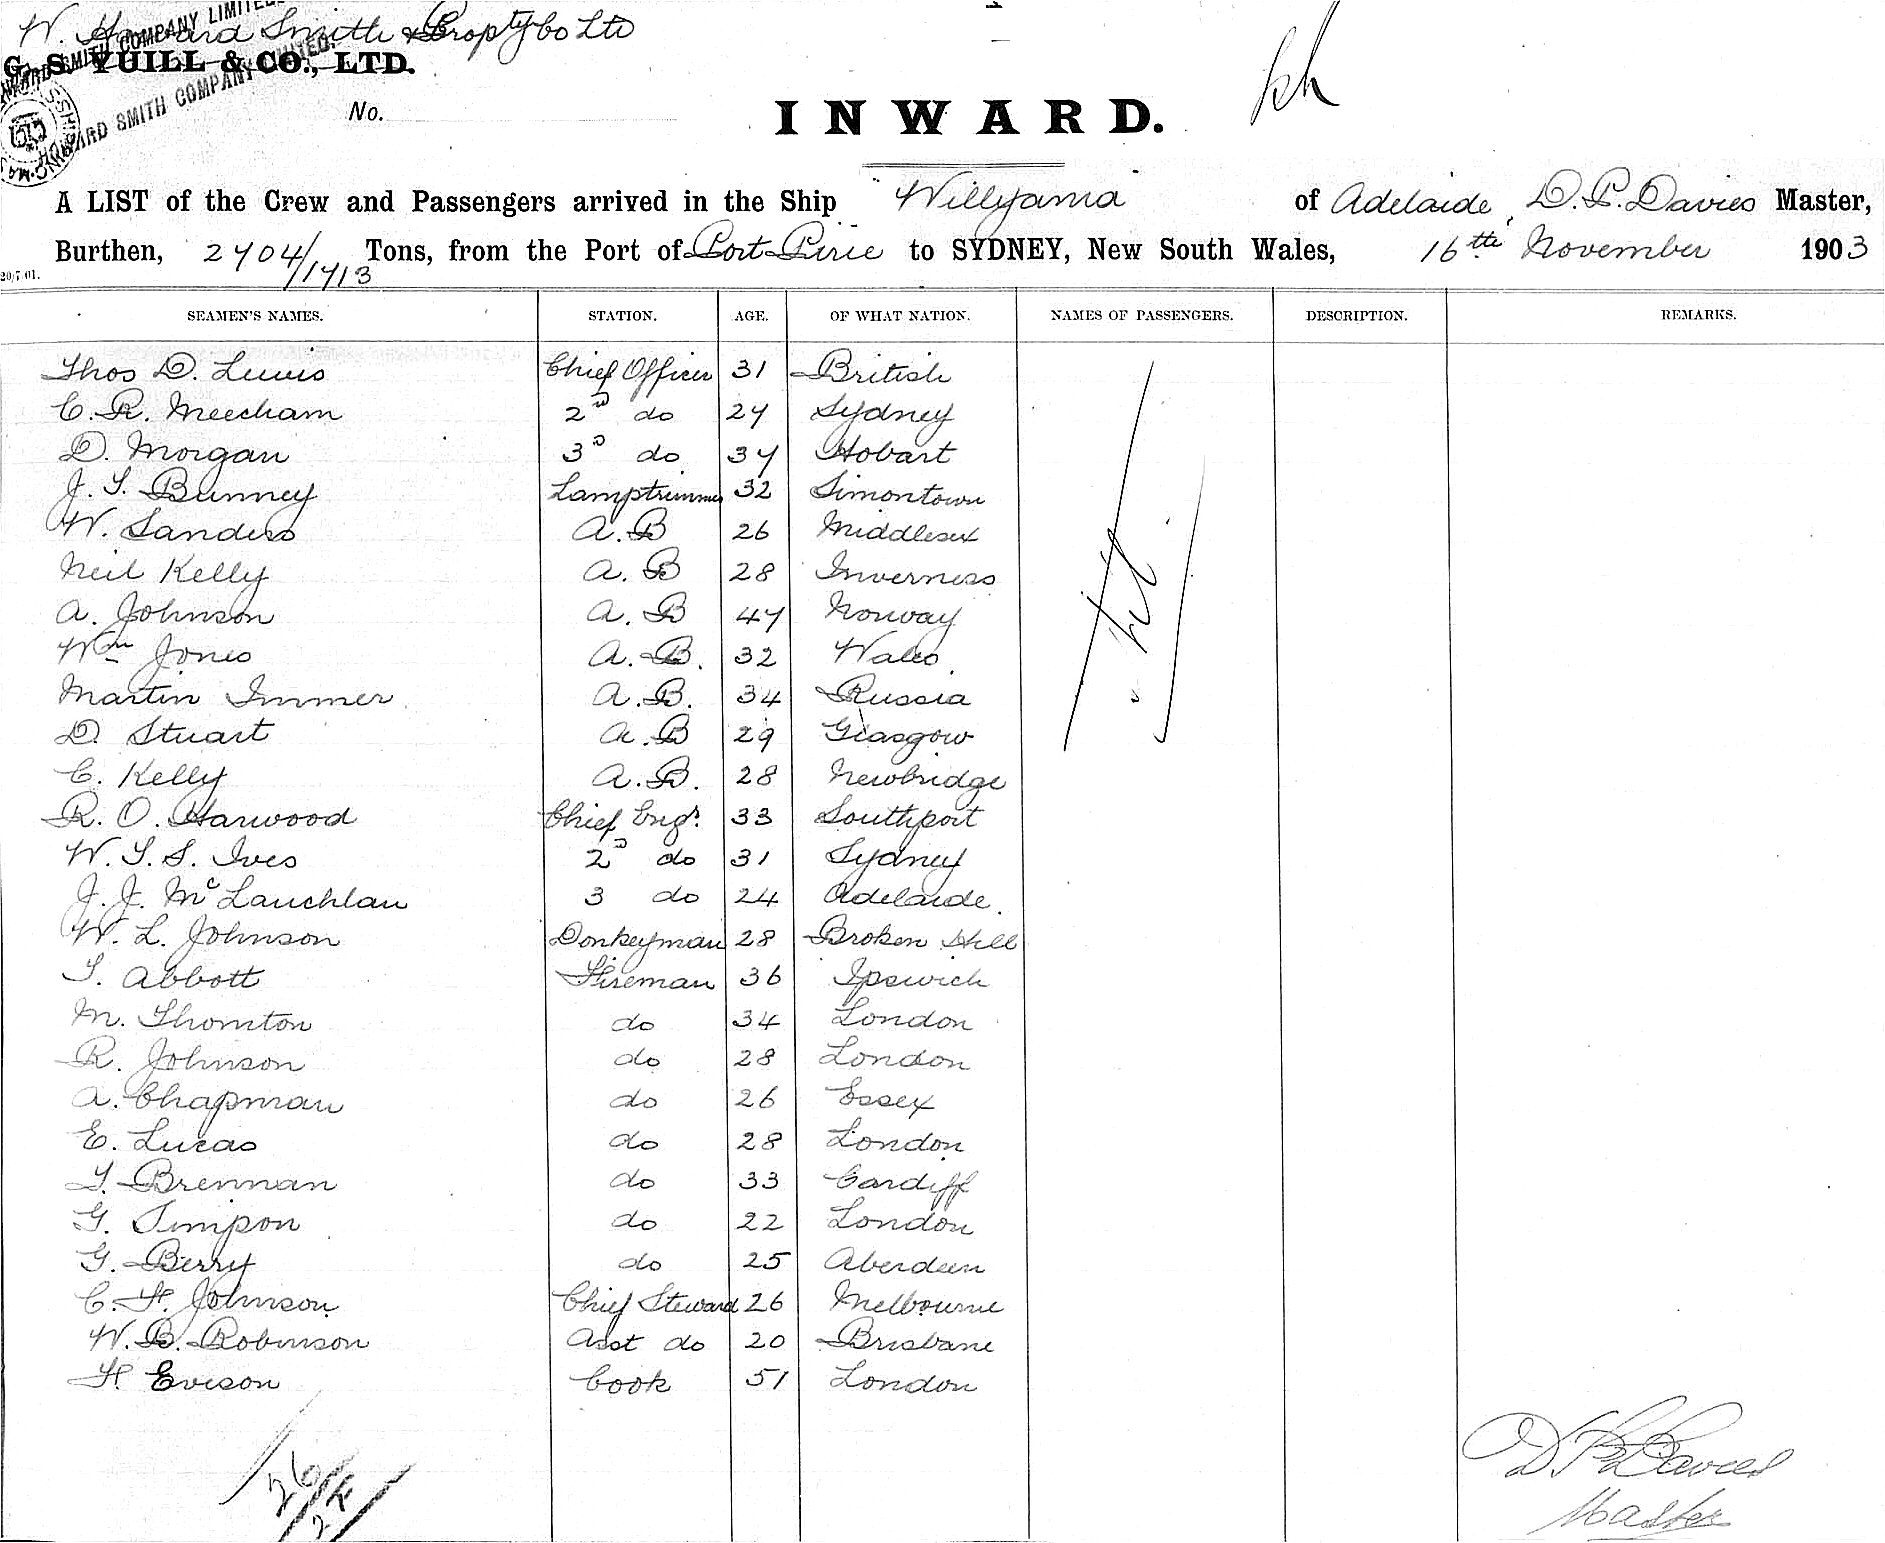 W. Howard Smith & Propty Co Ltd
G. S. YUILL & CO., LTD.
HOWARD SMITH COMPANY LIMITED.
HOWARD SMITH COMPANY LIMITED.
No.
INWARD.
A LIST of the Crew and Passengers arrived in the Ship "Willyama" of Adelaide, D. P. Davies Master,
Burthen, 2704/1713 Tons, from the Port of Port Pirie to SYDNEY, New South Wales, 16th November 1903
20/7/01.
SEAMEN'S NAMES. STATION. AGE. OF WHAT NATION. NAMES OF PASSENGERS. DESCRIPTION. REMARKS.
Thos D. Lewis Chief Officer 31 British
C. R. Meecham 2nd do 27 Sydney
D. Morgan 3D do 37 Hobart
J. T. Bunney Lamptrimmer 32 Simontown
W. Sanders A.B 26 Middlesex
Neil Kelly A.B 28 Inverness
A. Johnson A.B 47 Norway
Wm Jones A.B. 32 Wales
Martin Immer A.B. 34 Russia
D. Stuart A.B 29 Glasgow
C. Kelly A.B. 28 Newbridge
R. O. Harwood Chief Engr. 33 Southport
W. T. S. Ives 2D do 31 Sydney
J. J. McLauchlan 3 do 24 Adelaide.
W. L. Johnson Donkeyman 28 Broken Hill
T. Abbott Fireman 36 Ipswich
M. Thornton do 34 London
R. Johnson do 28 London
A. Chapman do 26 Essex
E. Lucas do 28 London
T. Brennan do 33 Cardiff
G. Timpson do 22 London
G. Berry do 25 Aberdeen
C. H. Johnson Chief Steward 26 Melbourne
W. B. Robinson Asst do 20 Brisbane
H. Evison Cook 51 London
Nil
26
27
D. P. Davies
Master